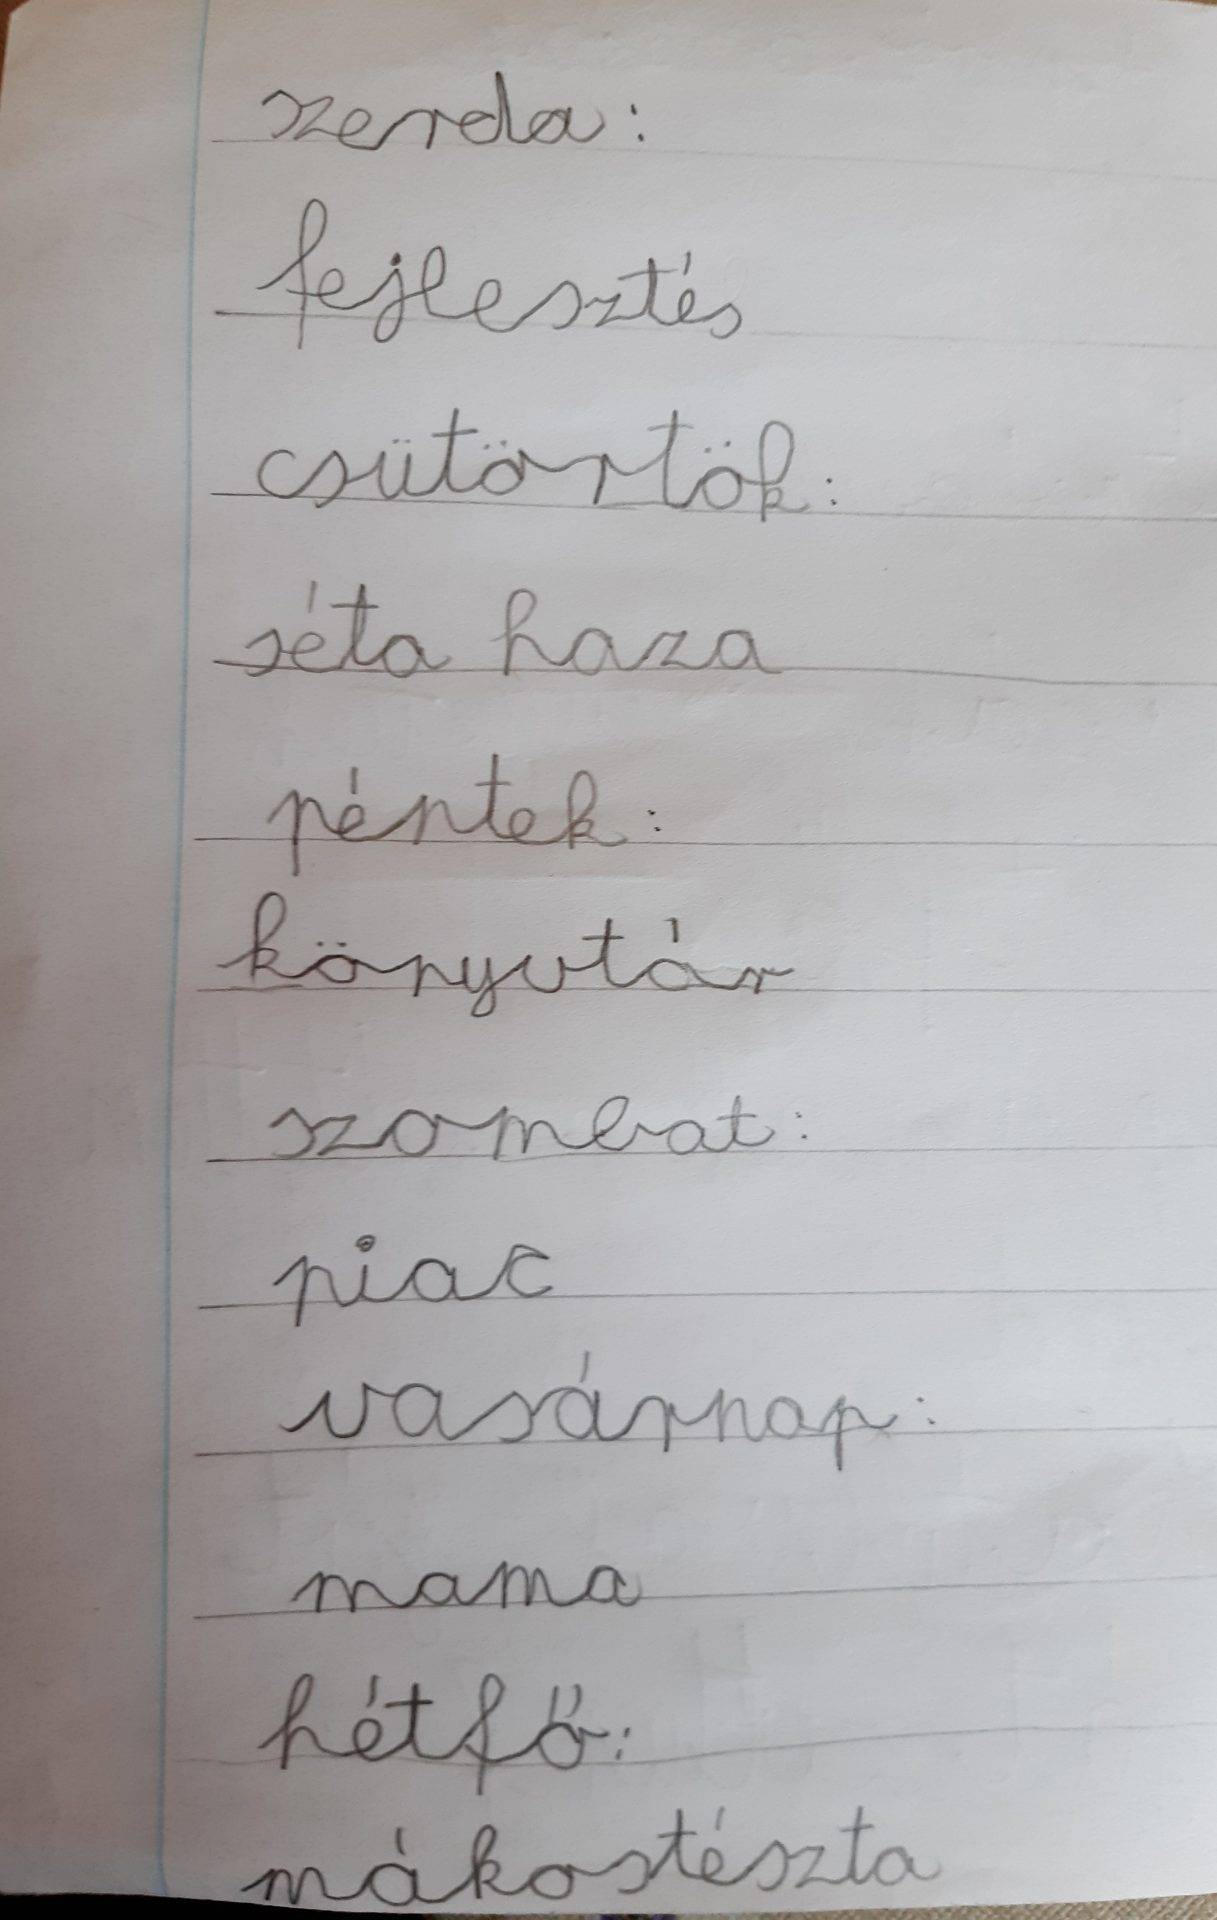 szerda:
fejlesztés
csütörtök:
séta haza
péntek:
könyvtár
szombat:
piac
vasárnap:
mama
hétfő:
mákostészta